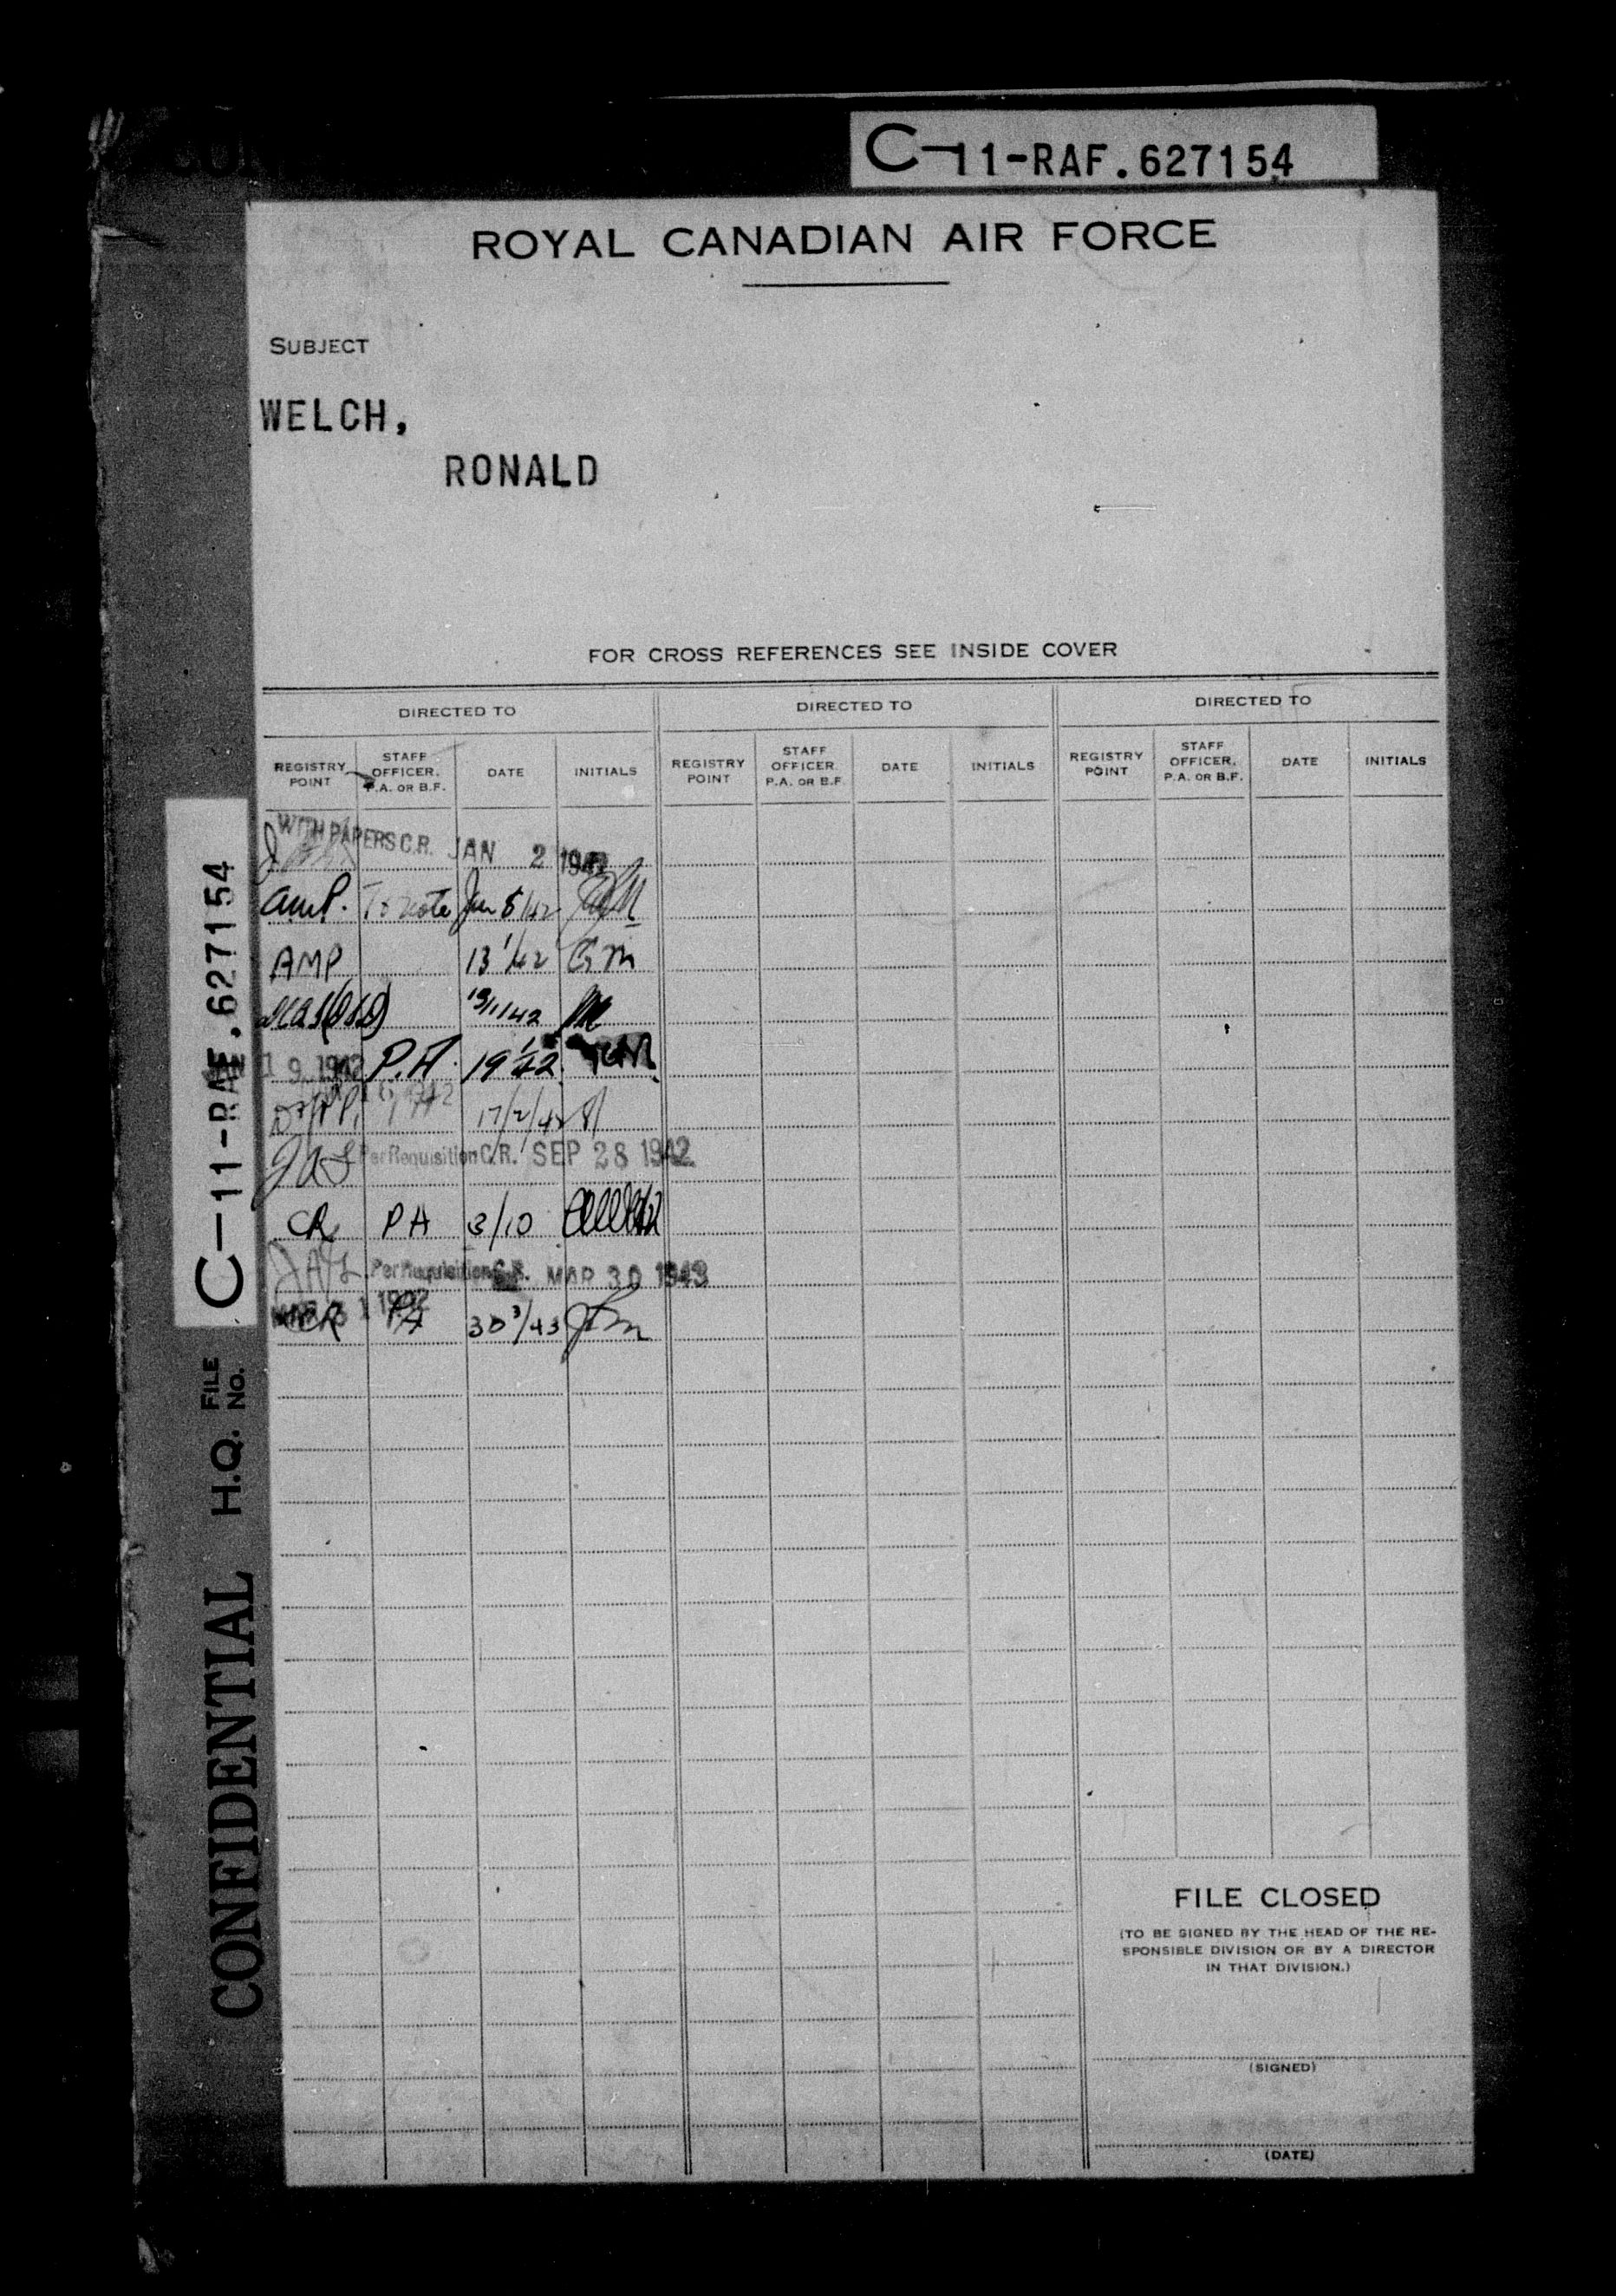 C-11-RAF.627154
ROYAL CANADIAN AIR FORCE
SUBJECT
WELCH,
RONALD
FOR CROSS REFERENCES SEE INSIDE COVER
DIRECTED TO DIRECTED TO DIRECTED TO
REGISTRY POINT STAFF OFFICER, P.A. OR B.F. DATE INITIALS REGISTRY POINT STAFF OFFICER P.A. OR B.F. DATE INITIALS REGISTRY POINT STAFF OFFICER, P.A. OR B.F. DATE INITIALS
WITH PAPERS C.R. JAN 2 1942
AMP. To note Jan 5/42
AMP 13/1/42 GM
19/1/42
JAN 19 1942 P.A. 19/1/42
17/2/42
JAS Per Requisition C.R. SEP 28 1942
CR PA 3/10
JAS Per Requisition C.R. MAR 30 1943
CR PA 30/3/43
C-11-RAF.627154
CONFIDENTIAL H.Q. FILE No.
FILE CLOSED
(TO BE SIGNED BY THE HEAD OF THE RE-
SPONSIBLE DIVISION OR BY A DIRECTOR
IN THAT DIVISION.)
(SIGNED)
(DATE)